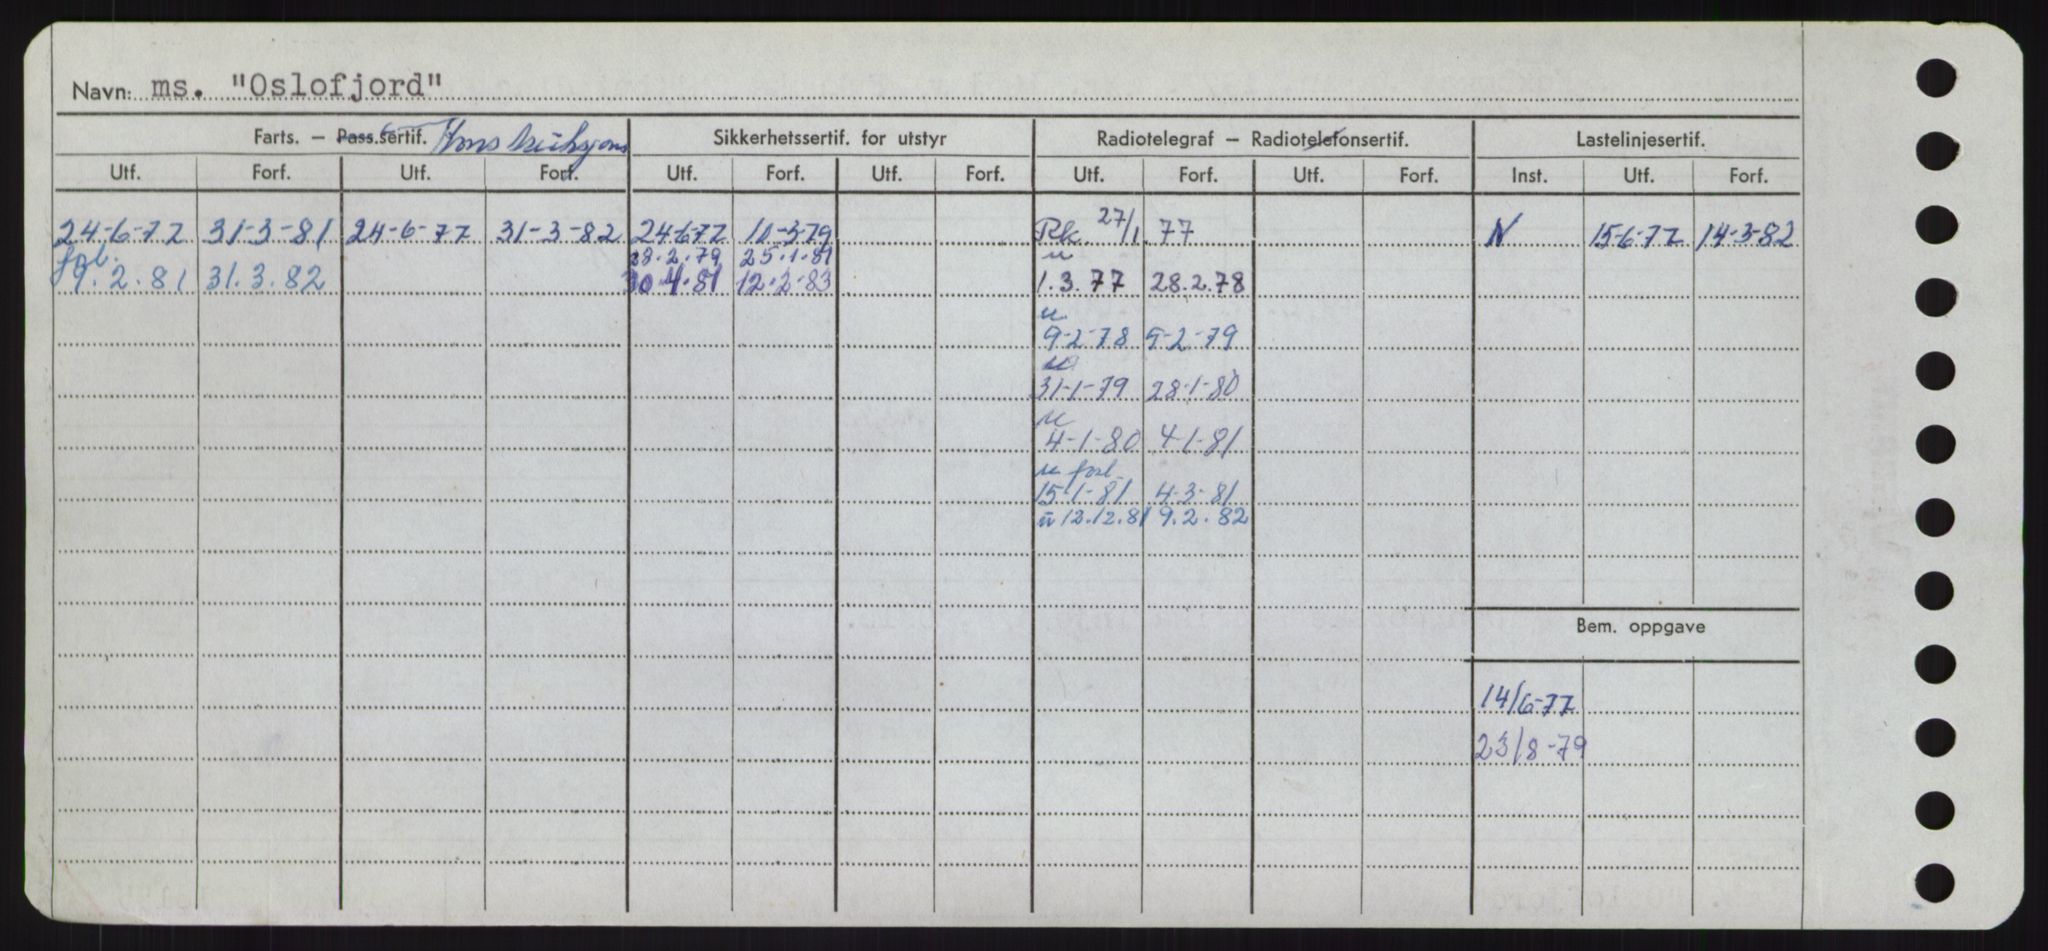 Navn: ms. "Oslofjord"
Farts. – Pass.sertif. Konstruksjons Sikkerhetssertif. for utstyr Radiotelegraf – Radiotelefonsertif. Lastelinjesertif.
Utf. Forf. Utf. Forf. Utf. Forf. Utf. Forf. Utf. Forf. Utf. Forf. Inst. Utf. Forf.
24-6-77 31-3-81 24-6-77 31-3-82 24-6-77 10-3-79 Rk. 27/1 77 N 15-6-77 14-3-82
28.2.79 25.1.81 u
9.2.81 31.3.82 30.4.81 12.2.83 1.3.77 28.2.78
u
9-2-78 9-2-79
31-1-79 28-1-80
u
4-1-80 4-1-81
u forl.
15-1-81 4-3-81
u 12.12.81 9.2.82
Bem. oppgave
14/6-77
23/8-79